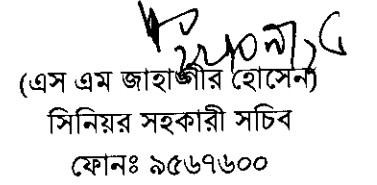 (এস এম জাহাঙ্গীর হোসেন)
সিনিয়র সহকারী সচিব
ফোনঃ ৯৫৬৭৬০০